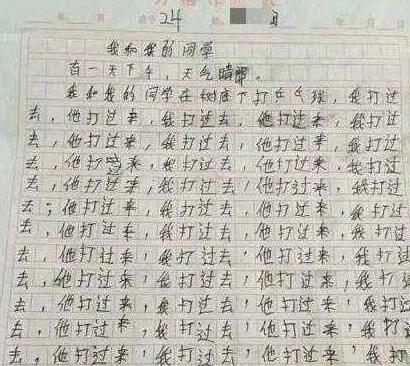 24
月
我和我的同学
有一天下午，天气晴朗。
我和我的同学在树底下打乒乓球，我打过
去，他打过来，我打过去，他打过来，我打过
去，他打过来，我打过去，他打过来，我打过
去，他打过来，我打过去，他打过来，我打过
去，他打过来，我打过去，他打过来，我打过
去，他打过来，我打过去，他打过来，我打过
去，他打过来，我打过去，他打过来，我打过
去，他打过来，我打过去，他打过来，我打过
去，他打过来，我打过去，他打过来，我打
去，他打过来，我打过去，他打过来，我打
去，他打过来，我打过去，他打过来，我打
去，他打过来，我打过去，他打过来，我打